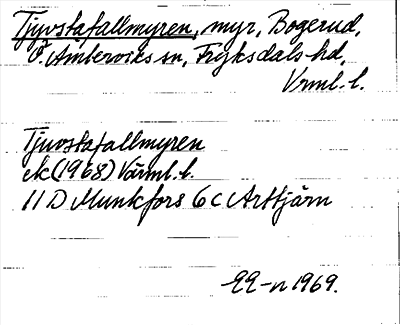 Tjuvstafallmyren, myr, Bogerud,
Ö. Ämterviks sn, Fryksdals hd,
Vrml. l.
Tjuvstafallmyren
ek (1968) Värml. l.
11 D Munkfors 6 c Arttjärn
1969.